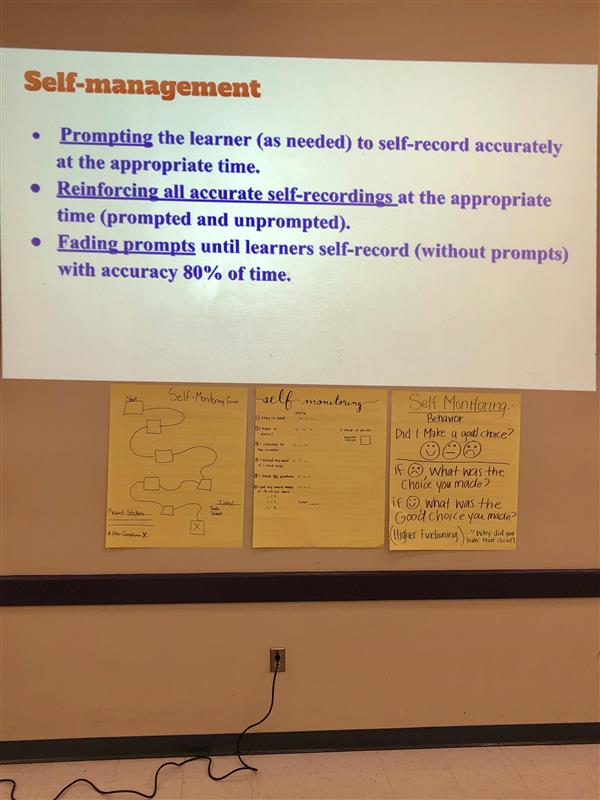 Self-management
• Prompting the learner (as needed) to self-record accurately
at the appropriate time.
• Reinforcing all accurate self-recordings at the appropriate
time (prompted and unprompted).
• Fading prompts until learners self-record (without prompts)
with accuracy 80% of time.
Self-Monitoring Form
Start
Reward Stickers
X
self monitoring
MATH
① Stay in seat
② I have a
pencil
③ I listened to
the teacher
④ I raised my hand
if I need help
Self Monitoring
Behavior
Did I Make a good choice?
if ☹ What was the
choice you made?
if ☺ what was the
Good choice you made?
(Higher Functioning) - "Why did you
make that choice?